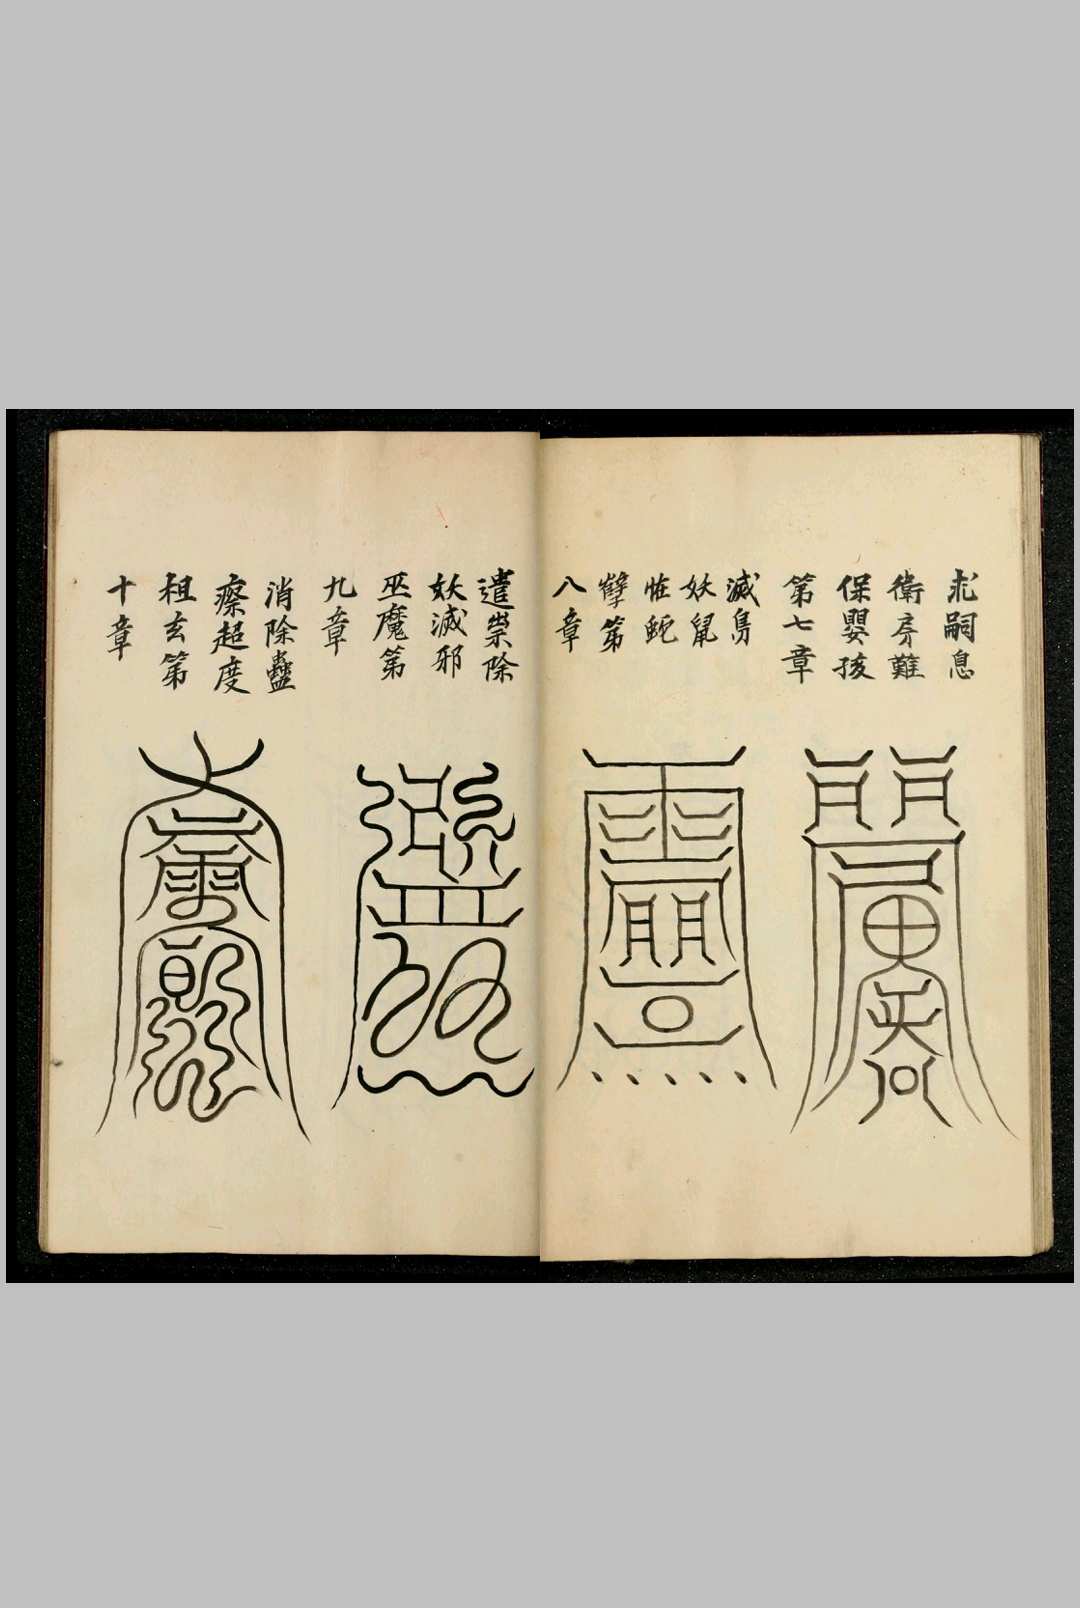 求嗣息
衛房難
保嬰孩
第七章
滅鳧
妖鼠
怪蛇
孽第
八章
遣祟除
妖滅邪
巫魔第
九章
消除蠱
瘵超度
祖玄第
十章